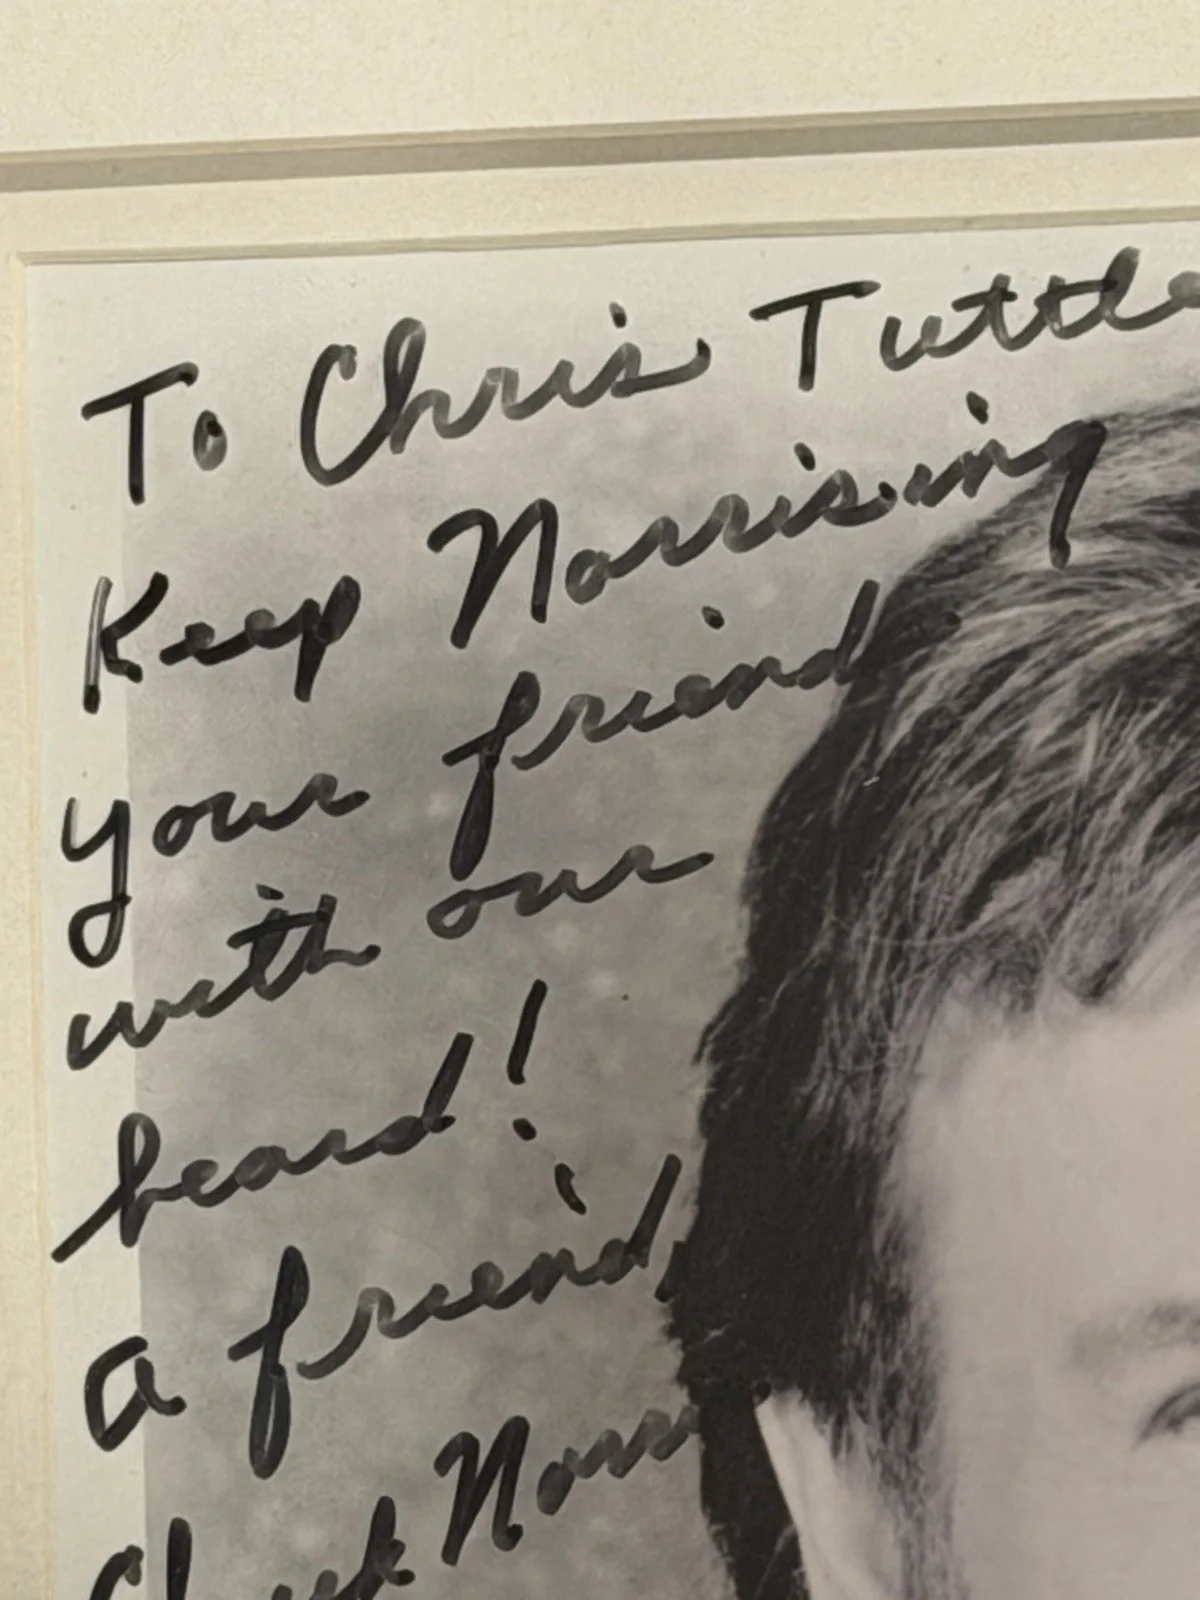 To Chris Tuttle
Keep Norrising
your friend
with our
beard!
a friend,
Chuck Norris